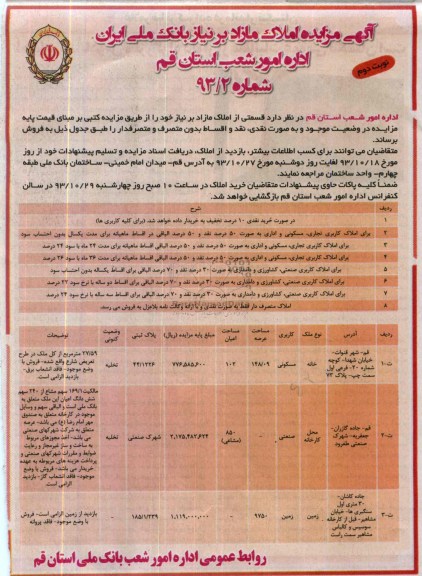 آگهی مزایده املاک مازاد بر نیاز بانک ملی ایران
اداره امور شعب استان قم
شماره ۹۳/۲
نوبت دوم
اداره امور شعب استان قم در نظر دارد قسمتی از املاک مازاد بر نیاز خود را از طریق مزایده کتبی بر مبنای قیمت پایه
مزایده در وضعیت موجود و به صورت نقدی، نقد و اقساط بدون متصرف و متصرفدار را طبق جدول ذیل به فروش
برساند.
متقاضیان می توانند برای کسب اطلاعات بیشتر، بازدید از املاک، دریافت اسناد مزایده و تسلیم پیشنهادات خود از روز
مورخ ۹۳/۱۰/۱۸ لغایت روز دوشنبه مورخ ۹۳/۱۰/۲۷ به آدرس قم- میدان امام خمینی- ساختمان بانک ملی طبقه
چهارم- واحد ساختمان مراجعه نمایند.
ضمناً کلیه پاکات حاوی پیشنهادات متقاضیان خرید املاک در ساعت ۱۰ صبح روز چهارشنبه ۹۳/۱۰/۲۹ در سالن
کنفرانس اداره امور شعب استان قم بازگشایی خواهد شد.
ردیف شرح
۱ در صورت خرید نقدی ۱۰ درصد تخفیف به خریدار داده خواهد شد. (برای کلیه کاربری ها)
۲ برای املاک کاربری تجاری، مسکونی و اداری به صورت ۵۰ درصد نقد و ۵۰ درصد الباقی در اقساط ماهیانه برای مدت یکسال بدون احتساب سود
۳ برای املاک کاربری تجاری، مسکونی و اداری به صورت ۵۰ درصد نقد و ۵۰ درصد الباقی اقساط ماهیانه برای مدت ۲۴ ماه با سود ۲۳ درصد
۴ برای املاک کاربری تجاری، مسکونی و اداری به صورت ۵۰ درصد نقد و ۵۰ درصد الباقی اقساط ماهیانه برای مدت ۳۶ ماه با سود ۲۴ درصد
۵ برای املاک کاربری صنعتی، کشاورزی و دامداری به صورت ۳۰ درصد نقد و ۷۰ درصد الباقی برای اقساط یکساله بدون احتساب سود
۶ برای املاک کاربری صنعتی، کشاورزی و دامداری به صورت ۳۰ درصد نقد و ۷۰ درصد الباقی برای اقساط دو ساله با نرخ سود ۲۳ درصد
۷ برای املاک کاربری صنعتی، کشاورزی و دامداری به صورت ۳۰ درصد نقد و ۷۰ درصد الباقی برای اقساط سه ساله با نرخ سود ۲۴ درصد
۸ املاک متصرف دار فقط به صورت نقدی و با ارائه وکالت نامه بلاعزل به فروش می رسد.
ردیف آدرس نوع ملک کاربری مساحت عرصه مساحت اعیان مبلغ پایه مزایده (ریال) پلاک ثبتی وضعیت کنونی توضیحات
ت-۱ خانه مسکونی ۱۴۸/۰۹ ۱۰۲ ۷۷۴,۵۸۵,۶۰۰ ۴۴/۱۲۲۶ تخلیه
قم- شهر قنوات-
خیابان شهدا- کوچه
شماره ۲۰- فرعی اول
سمت چپ- پلاک ۷۳
۲۷/۵۹ مترمربع از کل ملک در طرح
تعریض شارع واقع شده- فروش با
وضع موجود- فاقد انشعاب برق-
بازدید الزامی است.
ت-۲ محل کارخانه صنعتی - ۸۵۰ (مشاعی) ۲,۱۷۵,۴۸۲,۶۲۴ شهرک صنعتی تخلیه
قم- جاده گازران-
جعفریه- شهرک
صنعتی طغرود
بانک ملی است و الباقی سهم و وسایل
موجود در کارخانه متعلق به صندوق
مهر امام رضا (ع) می باشد- عرصه
متعلق به شرکت شهرکهای صنعتی
می باشد- اخذ مجوزهای مربوط
ضوابط و مقررات شهرکهای صنعتی و
پرداخت هزینه های مربوطه به عهده
خریدار می باشد- فروش با وضع
موجود- فاقد انشعاب گاز- بازدید
الزامی است.
ت-۳ زمین زمین ۹۷۵۰ - ۱,۱۱۹,۰۰۰,۰۰۰ ۱۸۵/۱/۲۳۹ -
جاده کاشان-
۳۰ متری اول
سنگبری ها- خیابان
مشاهیر- قبل از کارخانه
مشاهیر سمت راست
بازدید از زمین الزامی است- فروش
با وضع موجود- فاقد پروانه
روابط عمومی اداره امور شعب بانک ملی استان قم